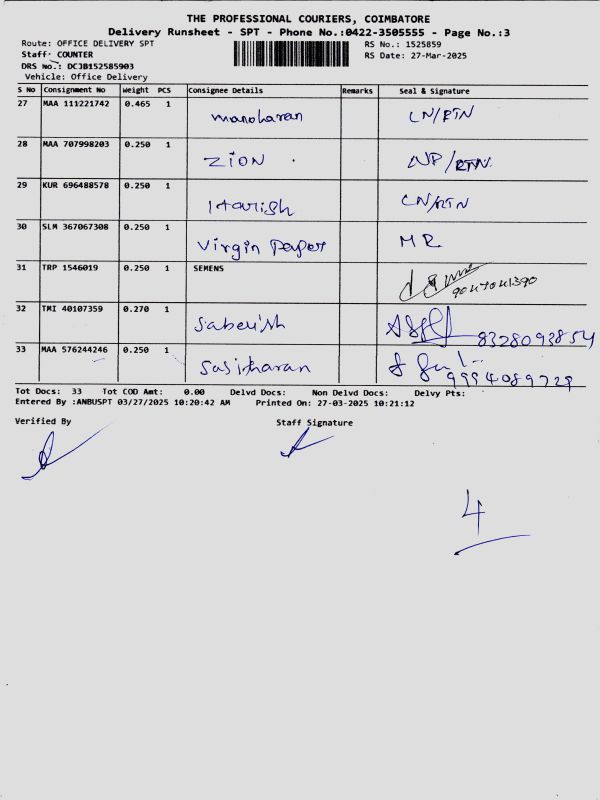 THE PROFESSIONAL COURIERS, COIMBATORE
Delivery Runsheet - SPT - Phone No.:0422-3505555 - Page No.:3
Route: OFFICE DELIVERY SPT RS No.: 1525859
Staff: COUNTER RS Date: 27-Mar-2025
DRS No.: DCJB152585903
Vehicle: Office Delivery
S No Consignment No Weight PCS Consignee Details Remarks Seal & Signature
27 MAA 111221742 0.465 1 manoharan LN/RTN
28 MAA 707998203 0.250 1 ZION NP/RTN
29 KUR 696488578 0.250 1 Harish CN/RTN
30 SLM 367067308 0.250 1 Virgin Paper MR
31 TRP 1546019 0.250 1 SEMENS
32 TMI 40107359 0.270 1 Saberish 8328093854
33 MAA 576244246 0.250 1 Sasitharan 9994089729
Tot Docs: 33 Tot COD Amt: 0.00 Delvd Docs: Non Delvd Docs: Delvy Pts:
Entered By :ANBUSPT 03/27/2025 10:20:42 AM Printed On: 27-03-2025 10:21:12
Verified By Staff Signature
4